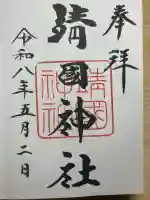 奉拝
靖國神社
令和八年五月二日
靖國神社